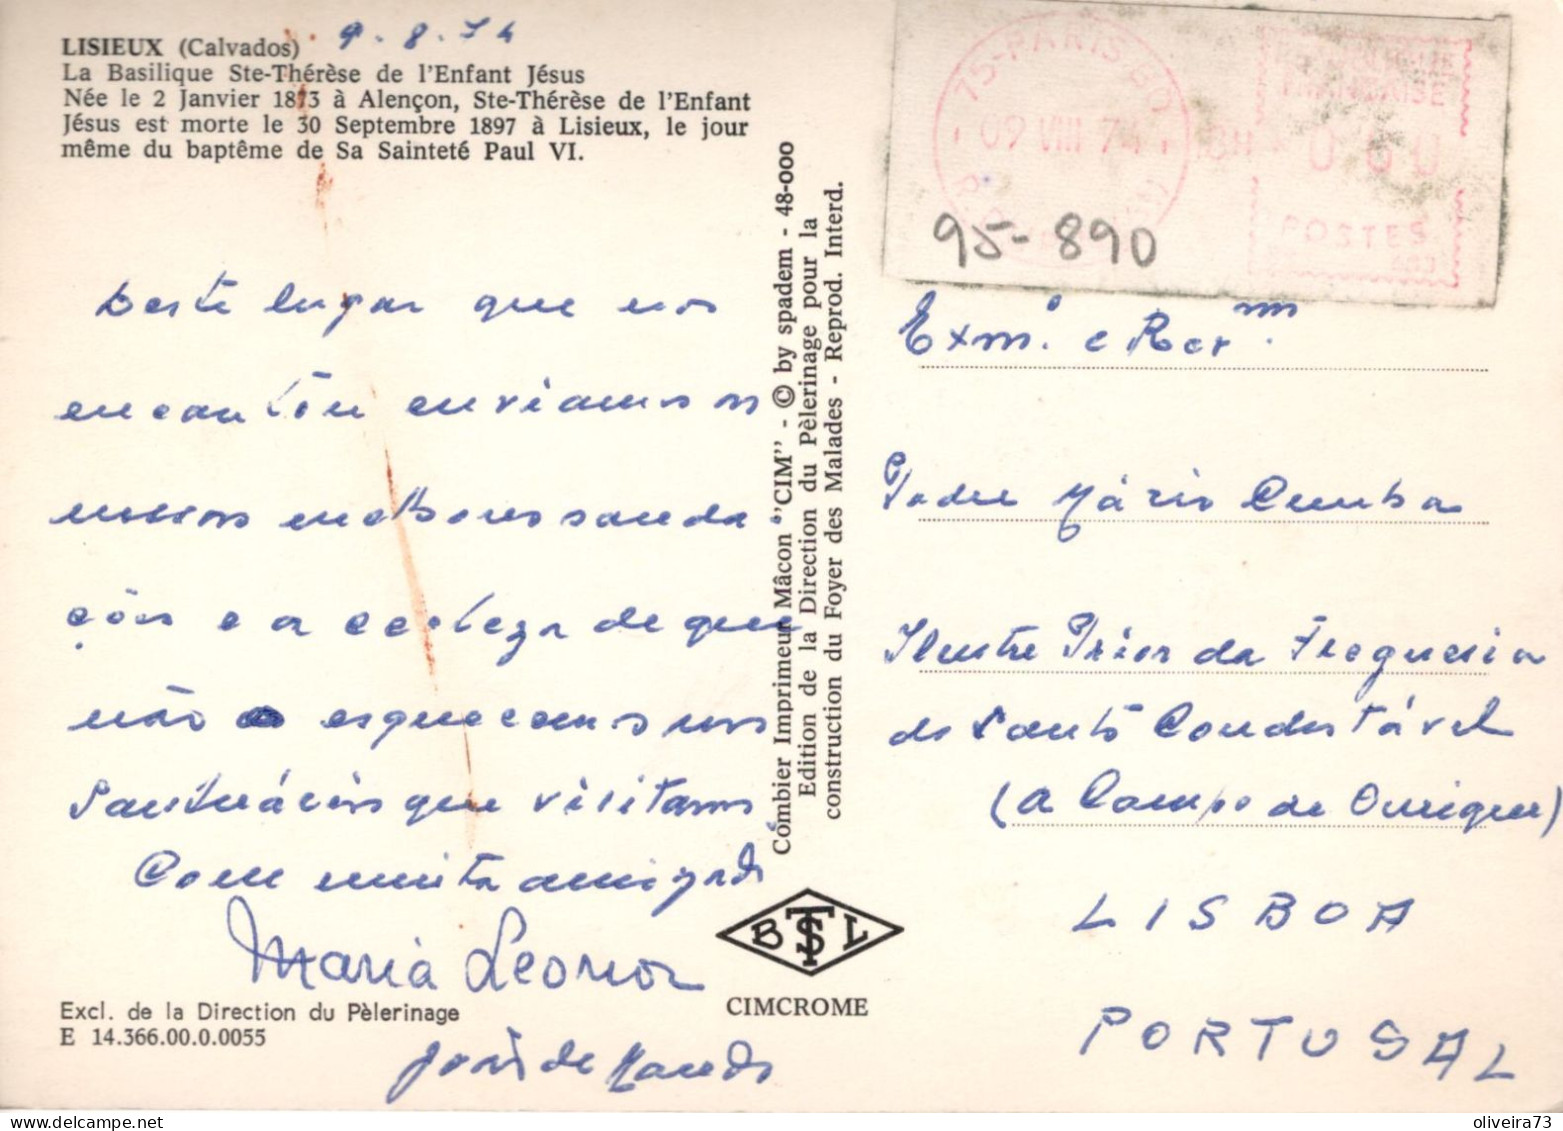 LISIEUX (Calvados) 9.8.74
La Basilique Ste-Thérèse de l'Enfant Jésus
Née le 2 Janvier 1873 à Alençon, Ste-Thérèse de l'Enfant
Jésus est morte le 30 Septembre 1897 à Lisieux, le jour
même du baptême de Sa Sainteté Paul VI.
Deste lugar que nos
encantou enviamos os
nossos melhores sauda
ções e a certeza de que
não esquecemos nos
Santuários que visitamos
Com muita amizade
Maria Leonor
José de
Excl. de la Direction du Pèlerinage
E 14.366.00.0.0055
Combier Imprimeur Mâcon "CIM" - © by spadem - 48-000
Edition de la Direction du Pèlerinage pour la
construction du Foyer des Malades - Reprod. Interd.
BTSL
CIMCROME
75-PARIS 80
09 VIII 74 18H
FRANÇAISE
0.60
POSTES
95-890
Exmº e Revmº
Padre Mário Cunha
Ilustre Prior da Freguesia
do Santo Condestável
(a Campo de Ourique)
LISBOA
PORTUGAL
oliveira73